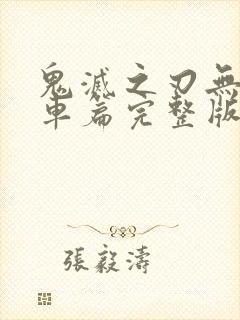 鬼滅之刃無
車篇完整版
張毅濤